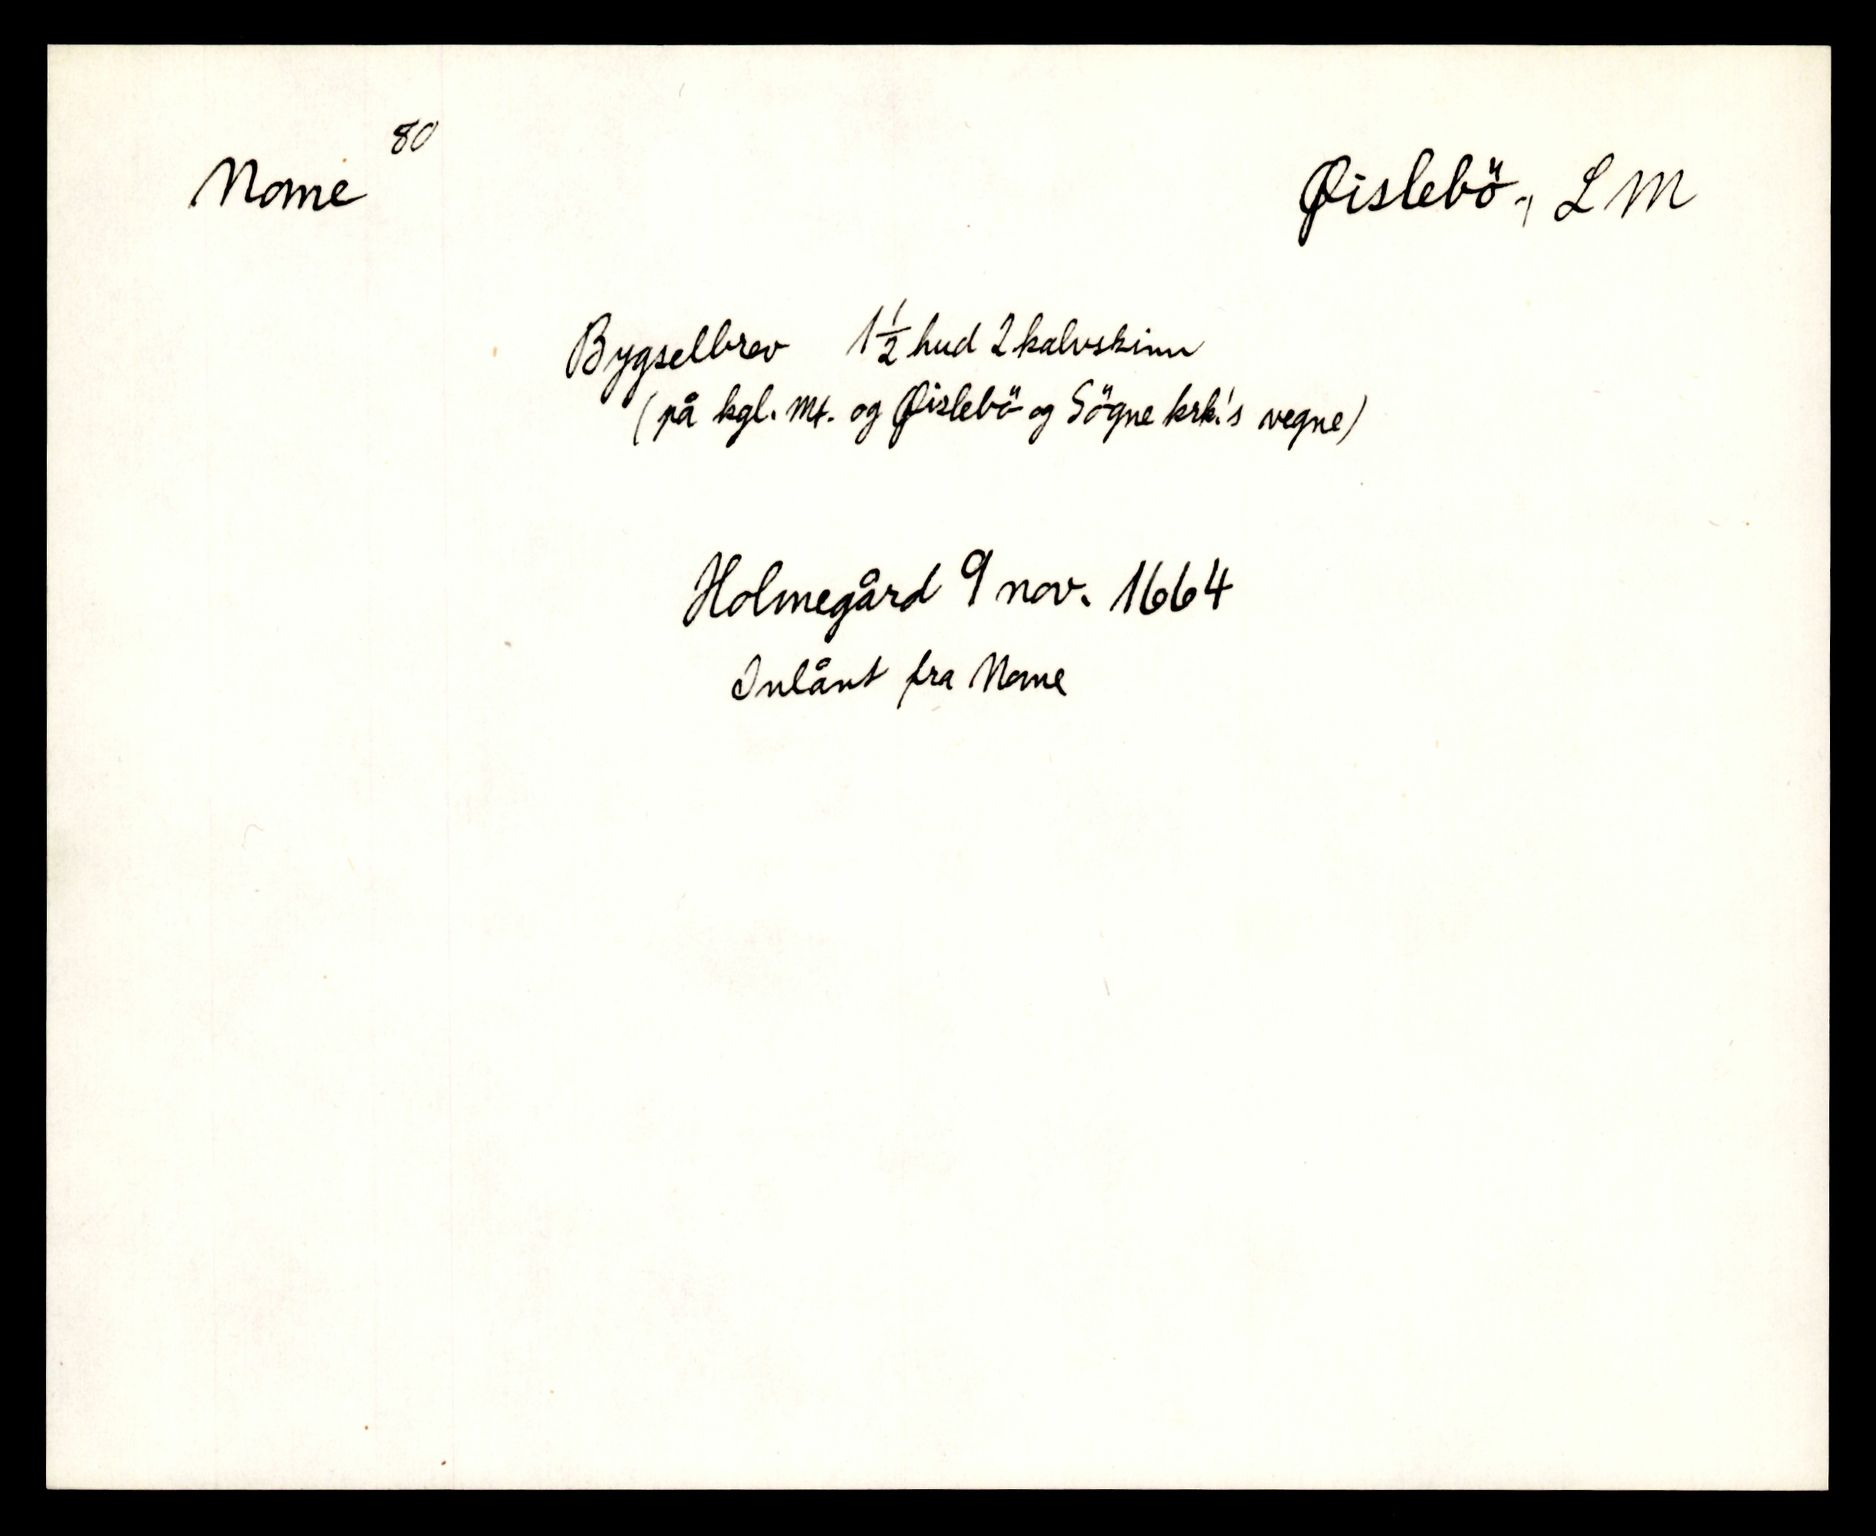 Nome 80
Øislebö, L M
Bygselbrev 1 1/2 hud 2 kalvskinn
(på kgl. Mt. og Øislebö og Sögne krk.'s vegne)
Holmegård 9 nov. 1664
Inlånt fra Nome